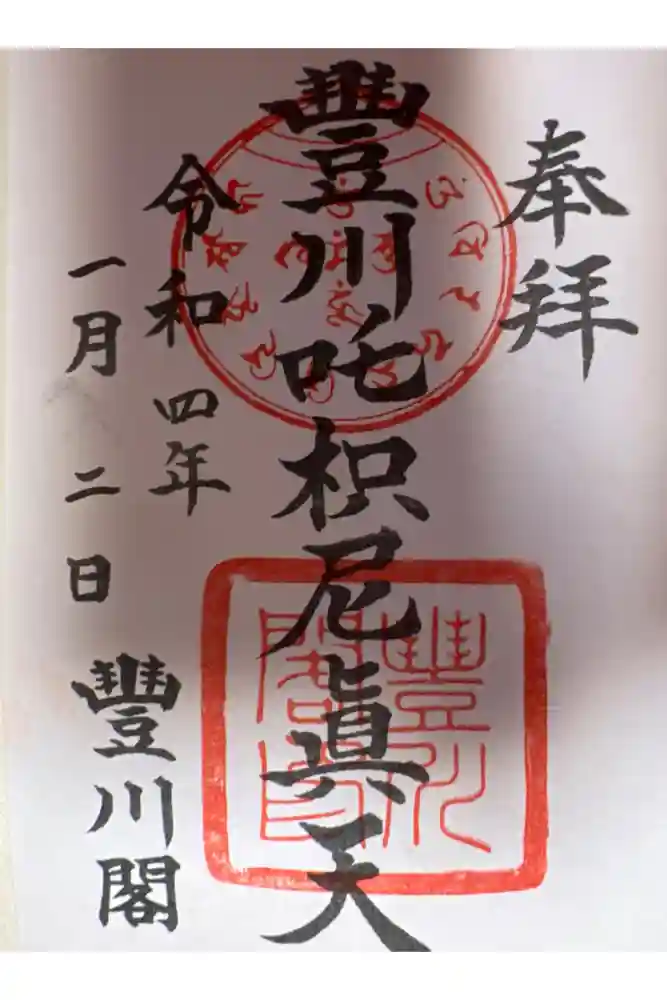 奉拝
豐川吒枳尼眞天
令和四年
一月二日
豐川閣
豐川
閣印